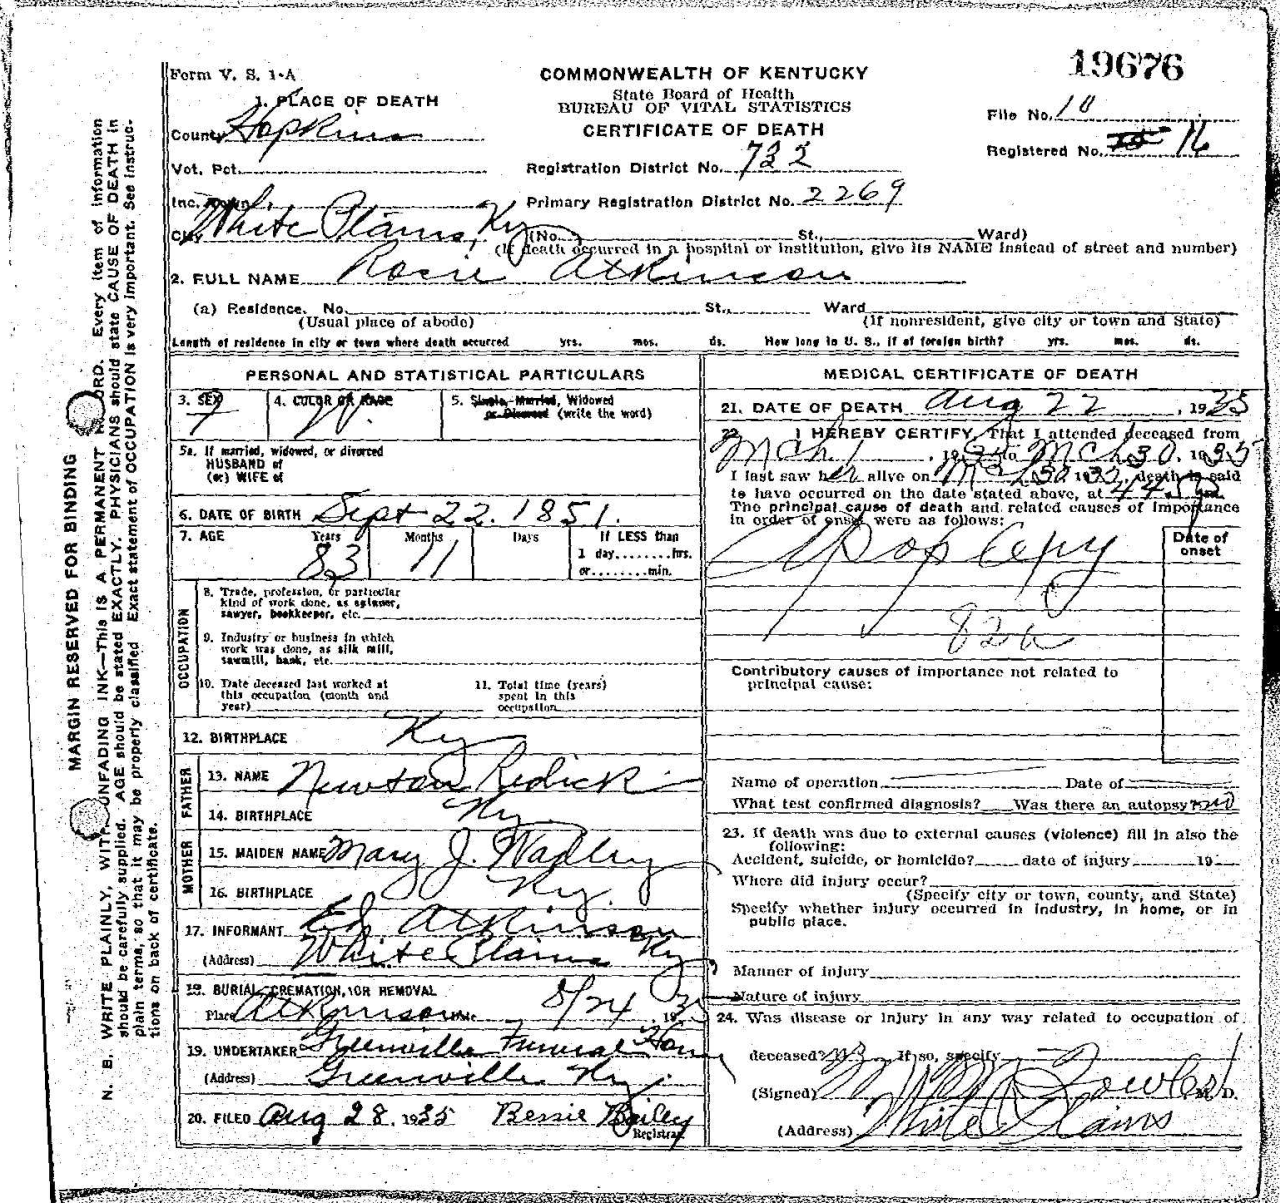 19676
Form V. S. 1-A
COMMONWEALTH OF KENTUCKY
State Board of Health
BUREAU OF VITAL STATISTICS
CERTIFICATE OF DEATH
1. PLACE OF DEATH
County Hopkins
File No. 10
Registered No. 16
Vot. Pct.
Registration District No. 732
Inc. Town
Primary Registration District No. 2269
City White Plains, Ky (No. St., Ward)
(If death occurred in a hospital or institution, give its NAME instead of street and number)
2. FULL NAME Rosie Atkinson
(a) Residence. No. St., Ward
(Usual place of abode) (If nonresident, give city or town and State)
Length of residence in city or town where death occurred yrs. mos. ds. How long in U. S., if of foreign birth? yrs. mos. ds.
PERSONAL AND STATISTICAL PARTICULARS
3. SEX F
4. COLOR OR RACE W.
5. Single, Married, Widowed
or Divorced (write the word)
5a. If married, widowed, or divorced
HUSBAND of
(or) WIFE of
6. DATE OF BIRTH Sept 22. 1851.
7. AGE Years Months Days If LESS than
1 day........hrs.
or........min.
83 11
OCCUPATION
8. Trade, profession, or particular
kind of work done, as spinner,
sawyer, bookkeeper, etc.
9. Industry or business in which
work was done, as silk mill,
sawmill, bank, etc.
10. Date deceased last worked at
this occupation (month and
year)
11. Total time (years)
spent in this
occupation
12. BIRTHPLACE Ky
FATHER
13. NAME Newton Redick
14. BIRTHPLACE Ky.
MOTHER
15. MAIDEN NAME Mary J. Wadley
16. BIRTHPLACE Ky.
17. INFORMANT Ed Atkinson
(Address) White Plains Ky
18. BURIAL, CREMATION, OR REMOVAL
Place Atkinson Date 8/24, 1935
19. UNDERTAKER Greenville Funeral Home
(Address) Greenville Ky.
20. FILED Aug 28, 1935 Bessie Bailey
Registrar.
MEDICAL CERTIFICATE OF DEATH
21. DATE OF DEATH Aug 22, 1935
22. I HEREBY CERTIFY, That I attended deceased from
Mch 1, 1935 to Mch 30, 1935
I last saw her alive on Mch 30 1935, death is said
to have occurred on the date stated above, at
The principal cause of death and related causes of importance
in order of onset were as follows:
Date of
onset
Apoplexy
82a
Contributory causes of importance not related to
principal cause:
Name of operation Date of
What test confirmed diagnosis? Was there an autopsy? no
23. If death was due to external causes (violence) fill in also the
following:
Accident, suicide, or homicide? date of injury 19
Where did injury occur?
(Specify city or town, county, and State)
Specify whether injury occurred in industry, in home, or in
public place.
Manner of injury
Nature of injury
24. Was disease or injury in any way related to occupation of
deceased? no If so, specify
(Signed) Fowler M. D.
(Address) White Plains
MARGIN RESERVED FOR BINDING
N. B. WRITE PLAINLY, WITH UNFADING INK—THIS IS A PERMANENT RECORD. Every item of information
should be carefully supplied. AGE should be stated EXACTLY. PHYSICIANS should state CAUSE OF DEATH in
plain terms, so that it may be properly classified. Exact statement of OCCUPATION is very important. See instruc-
tions on back of certificate.